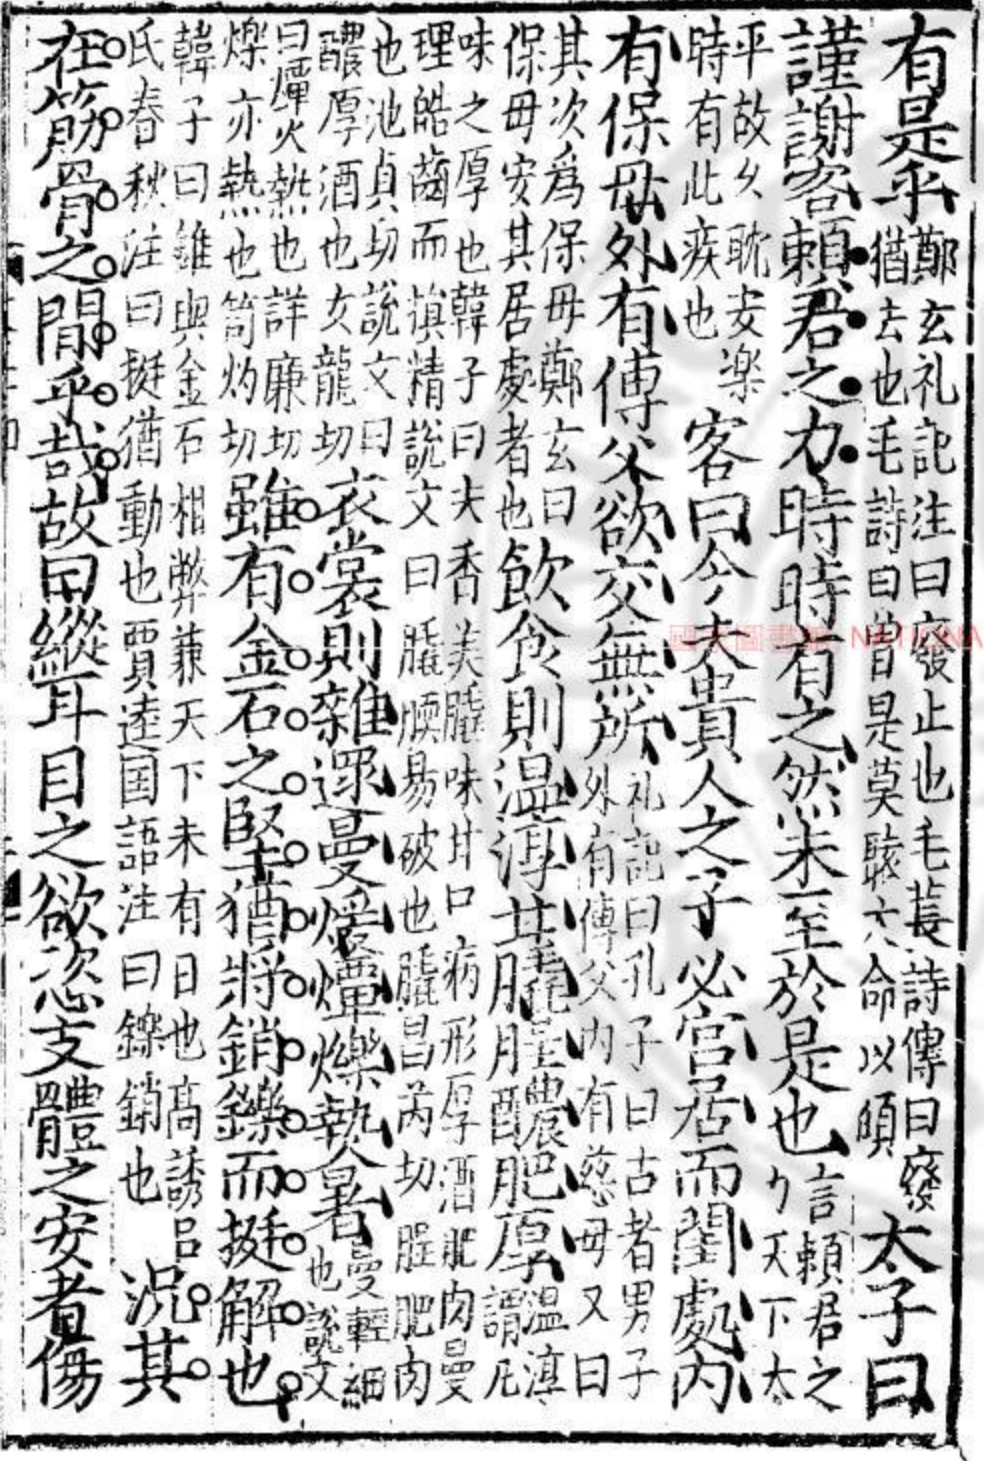 有是乎鄭玄礼記注曰廢發止也毛萇詩傳曰廢猶去也毛詩曰曽是莫聼大命以傾太子曰
謹謝客賴君之力時時有之然未至於是也言賴君之力天下太
平故久耽安樂時有此疾也客曰今夫貴人之子必宫居而閨處内
有保母外有傅父欲交無所礼記曰孔子曰古者男子外有傅父内有慈母又曰
其次爲保母鄭玄曰保母安其居處者也飲食則温淳甘膬脭醲肥厚温淳謂凡
味之厚也韓子曰夫香美膬味甘口病形厚酒肥肉曼理皓齒而損精說文曰膬腝易破也膬昌芮切脭肥肉
也池貞切說文曰醲厚酒也女龍切衣裳則雜遝曼煖燂爍熱暑曼輕細也說文
曰燂火熱也詳廉切爍亦熱也笥灼切雖有金石之堅猶將銷鑠而挺解也
韓子曰雖與金石相弊兼天下未有日也高誘吕氏春秋注曰挺猶動也賈逵国語注曰鑠銷也况其
在筋骨之間乎哉故曰縱耳目之欲恣支體之安者傷